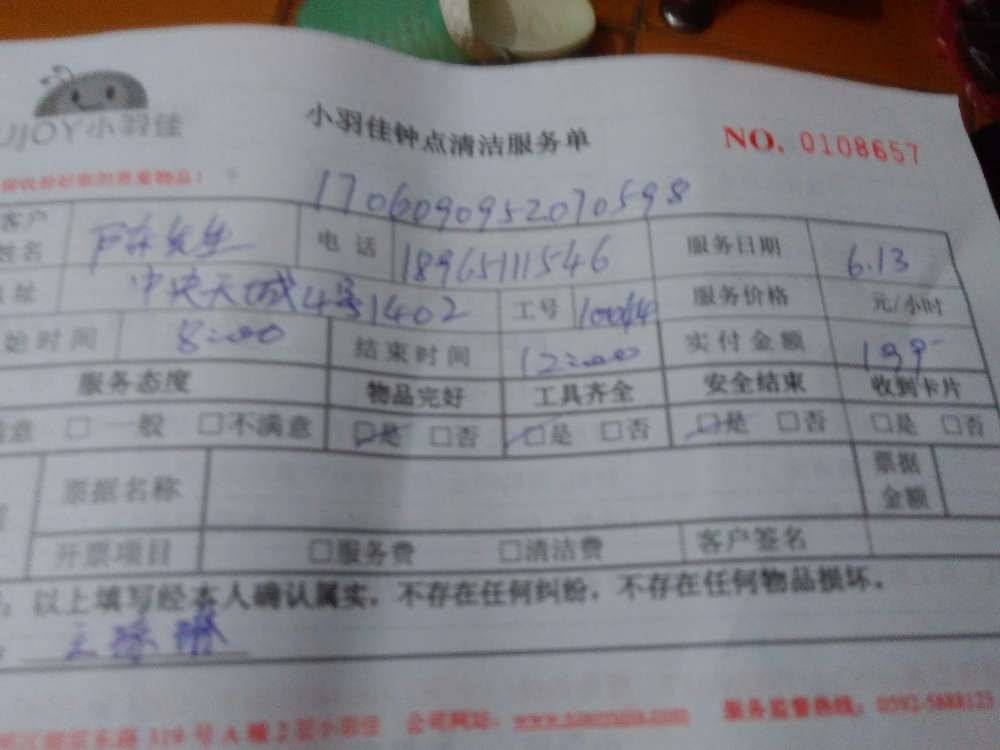 UJOY小羽佳
小羽佳钟点清洁服务单
NO. 0108657
1706090952070598
客户姓名 先生 电话 18965111546 服务日期 6.13
址 中央天城4号1402 工号 服务价格 元/小时
始时间 8:00 结束时间 12:00 实付金额 199
服务态度 物品完好 工具齐全 安全结束 收到卡片
意 □ 一般 □不满意 □是 □否 □是 □否 □是 □否 □是 □否
票据名称 票据金额
开票项目 □服务费 □清洁费 客户签名
以上填写经本人确认属实，不存在任何纠纷，不存在任何物品损坏。
319号A幢2层小羽佳 公司网站： 服务监督热线：0592-5888123